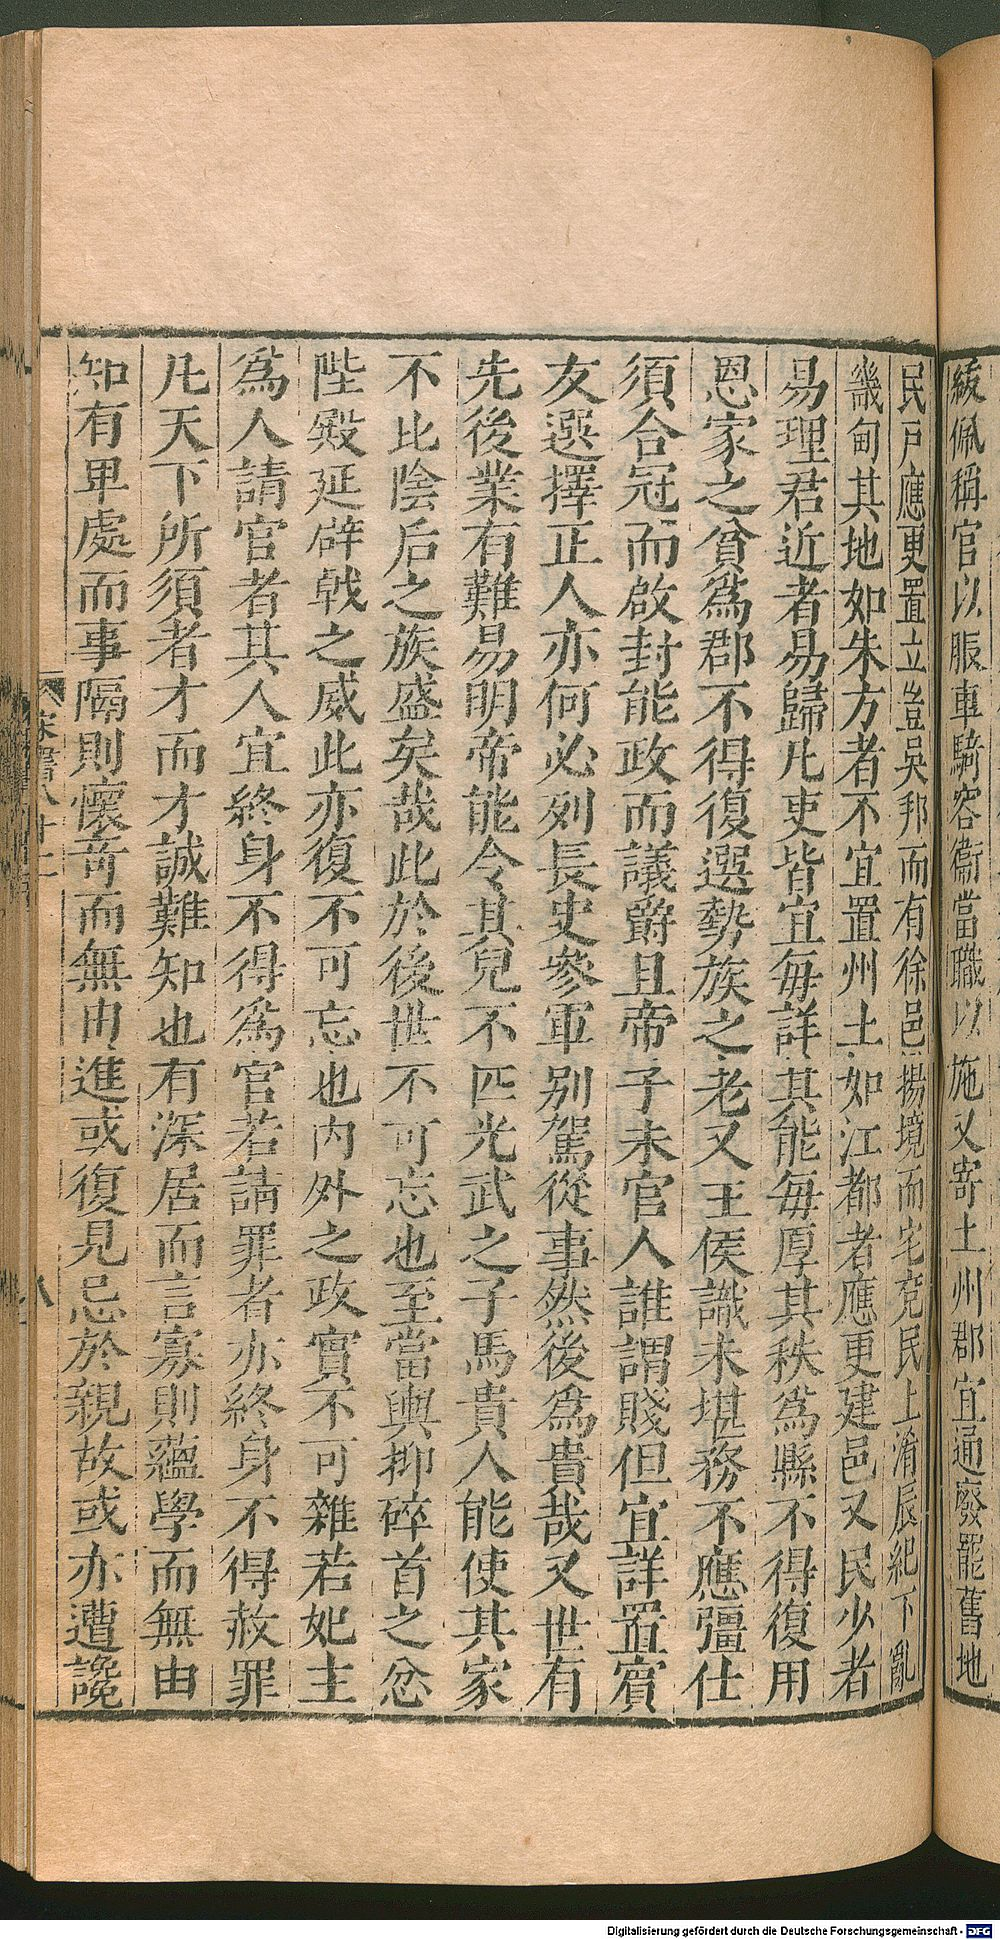 綾佩稱官以服車騎容衞當職以施又寄土州郡宜通廢罷舊地
民戸應更置立豈吳邦而有徐邑揚境而宅兖民上淆辰紀下亂
畿甸其地如朱方者不宜置州土如江都者應更建邑又民少者
易理君近者易歸凡吏皆宜每詳其能每厚其秩爲縣不得復用
恩家之貧爲郡不得復選勢族之老又王侯識未堪務不應彊仕
須合冠而啟封能政而議爵且帝子未官人誰謂賤但宜詳置賓
友選擇正人亦何必列長史參軍别駕從事然後爲貴哉又世有
先後業有難易明帝能令其兒不匹光武之子馬貴人能使其家
不比陰后之族盛矣哉此於後世不可忘也至當輿抑碎首之忿
陛殿延辟戟之威此亦復不可忘也内外之政實不可雜若妃主
爲人請官者其人宜終身不得爲官若請罪者亦終身不得赦罪
凡天下所須者才而才誠難知也有深居而言寡則蘊學而無由
知有卑處而事隔則懷奇而無由進或復見忌於親故或亦遭讒
宋書八十二
八
Digitalisierung gefördert durch die Deutsche Forschungsgemeinschaft - DFG